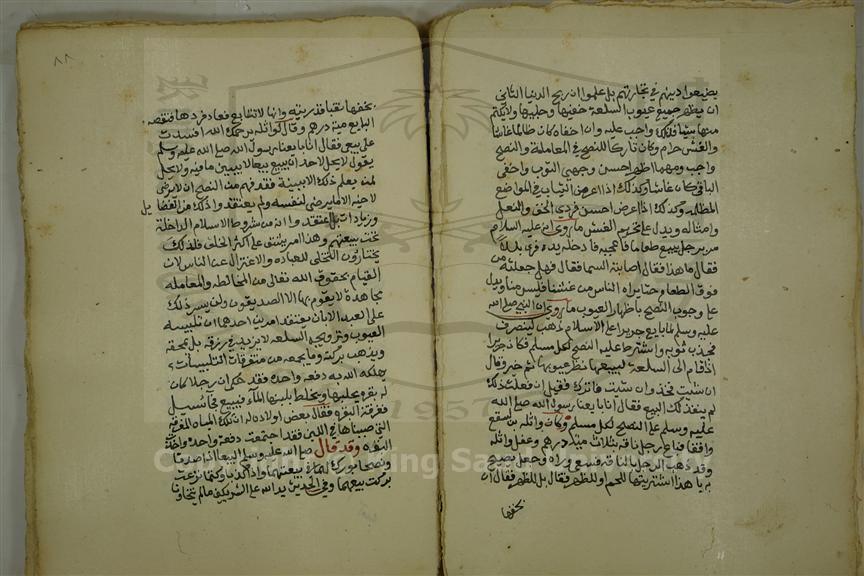 يضيعوا دينهم في تجارتهم بل علموا ان ربح الدنيا الثاني
ان يظهر جميع عيوب السلعة خفيها وجليها ولا يكتم
منها شيئا فذلك واجب عليه وان اخفاه كان ظالما غاشا
والغش حرام وكان تاركا للنصح في المعاملة والنصح
واجب ومهما اظهر احسن وجهي الثوب واخفى
الباقي كان غاشا وكذلك اذا عرض الثياب في المواضع
المظلمه وكذلك اذا عرض احسن فردي الخف والنعل
وامثاله ويدل على تحريم الغش ما روى انه عليه السلام
مر برجل يبيع طعاما فاعجبه فادخله يده فرى بللا
فقال ما هذا فقال اصابته السما فقال فهل جعلته من
فوق الطعام حتى يراه الناس من غشنا فليس منا ويدل
على وجوب النصح باظهار العيوب ما روى ان النبي صلى الله
عليه وسلم لما بايع جريرا على الاسلام ذهب لينصرف
فجذب ثوبه واشترط عليه النصح لكل مسلم فكان جريرا
اذا قام الى السلعة ليبيعها نظر عيوبها ثم خير وقال
ان شئت فخذ وان شئت فاترك فقيل ان فعلت ذلك
لم ينفذ لك البيع فقال انا بايعنا رسول الله صلى الله
عليه وسلم على النصح لكل مسلم وكان واثله بن الاسقع
واقفا فباع رجل ناقه بثلاث مية درهم وغفل واثله
وقد ذهب الرجل بالناقه فسعى وراه وجعل يصيح
به يا هذا اشتريتها للحم او للظهر فقال بل للظهر فقال ان
بخفها
٨٨
بخفها نقبا قد رايته وانها لا تتابع فعاد فردها فنقصه
البايع مية درهم وقال لواثله يرحمك الله افسدت
على بيعي فقال انا بايعنا رسول الله صلى الله عليه وسلم
يقول لا يحل لاحد ان يبيع بيعا الا يبين ما فيه ولا يحل
لمن يعلم ذلك الا يبينه فقد فهم من النصح ان لا يرضى
لاخيه الا ما يرضى لنفسه ولم يعتقدوا ذلك من الفضايل
وزيادات بل اعتقدوا انه من شروط الاسلام الداخلة
تحت بيعتهم وهذا امر يشق على اكثر الخلق فلذلك
يختارون التخلى للعباده والاعتزال عن الناس لان
القيام بحقوق الله تعالى من المخالطه والمعامله
مجاهدة لا يقوم بها الا الصديقون ولن يتيسر ذلك
على العبد الا بان يعتقد امرين احدهما ان تلبيسه
العيوب وترويجه السلعه لا يزيد في رزقه بل يمحقه
ويذهب بركته وما يجمعه من متفرقات التلبيسات
يهلكه الله به دفعه واحده فقد حكى ان رجلا كان
له بقره يحلبها ويخلط بلبنها الماء ويبيع فجا سيل
فغرقة البقره فقال بعض اولاده ان تلك المياه المفرقه
التى صببناها في اللبن فقد اجتمعت دفعة واحدة واخذت
البقره وقد قال صلى الله عليه وسلم البيعان اذا صدقا
ونصحا بورك لهما في بيعتهما واذا كذبا وكتما نزعت
بركت بيعهما وفي الحديث يد الله على الشريكين ما لم يتخاونا